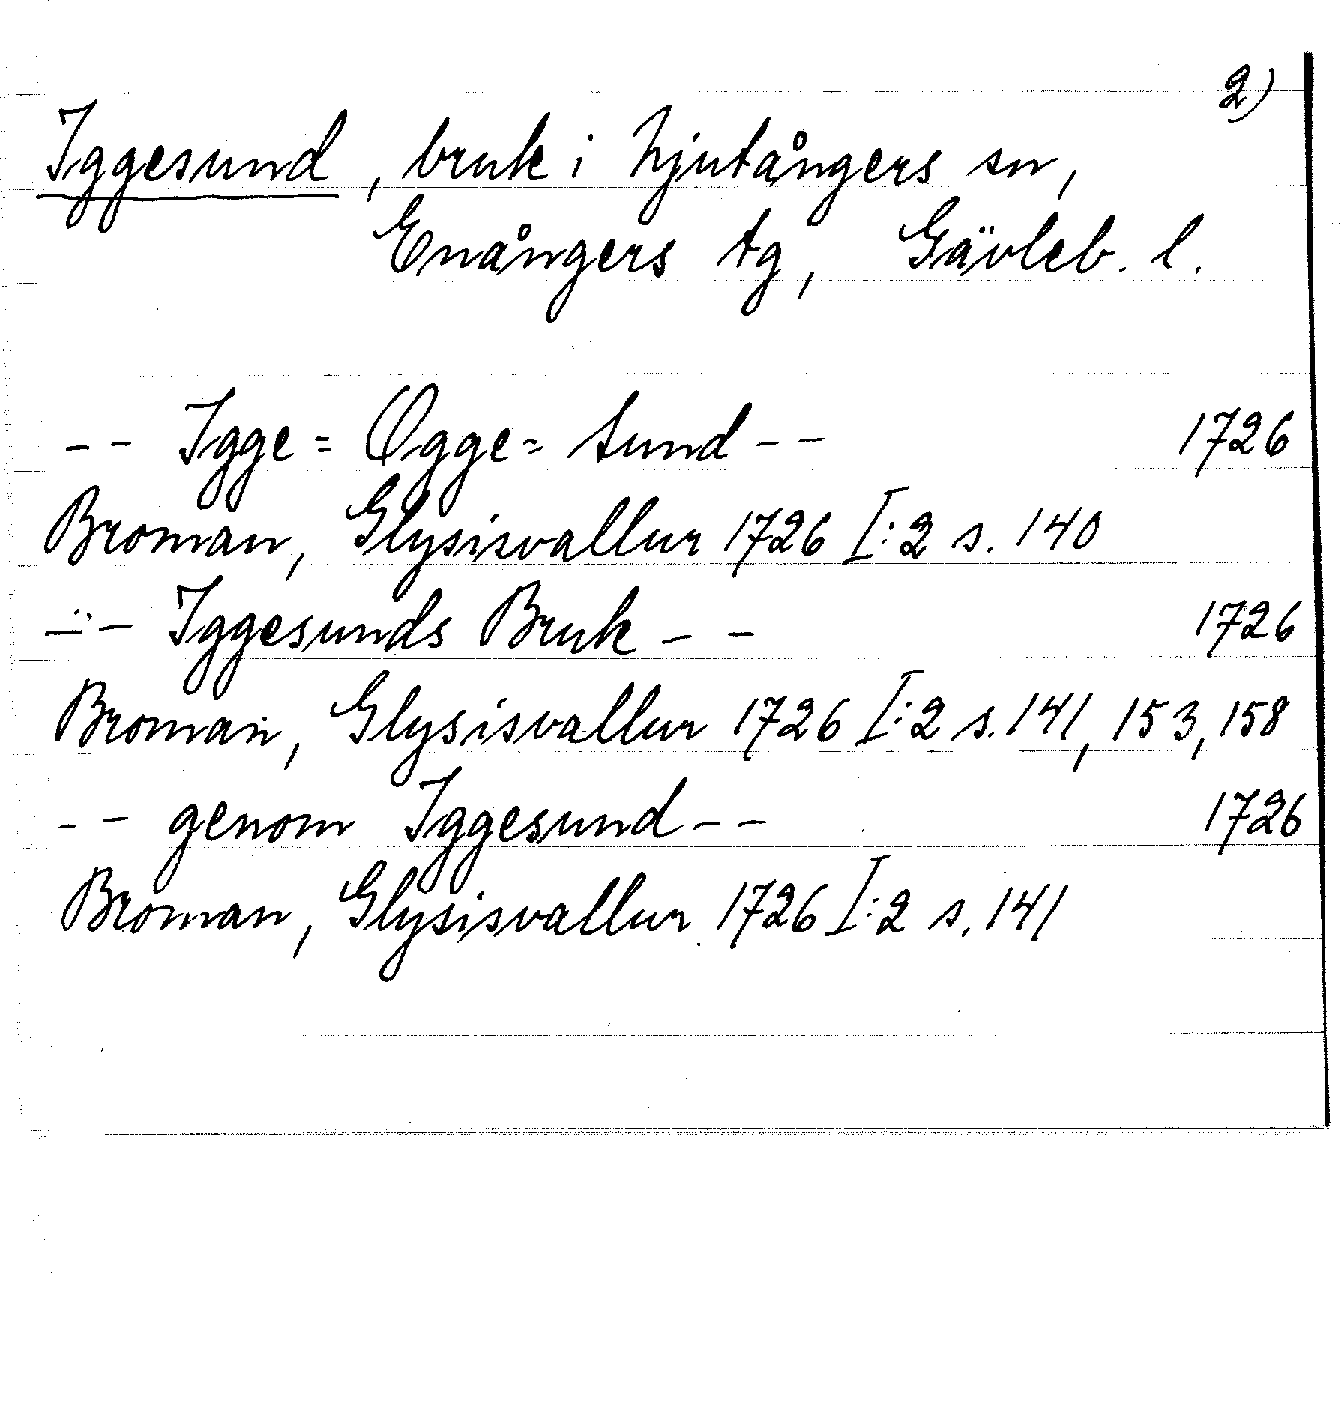 2)
Iggesund, bruk i Njutångers sn,
Enångers tg, Gävleb. l.
-- Igge= Ogge= Sund --
1726
Broman, Glysisvallur 1726 I:2 s. 140
-- Iggesunds Bruk --
1726
Broman, Glysisvallur 1726 I:2 s. 141, 153, 158
-- genom Iggesund --
1726
Broman, Glysisvallur 1726 I:2 s. 141